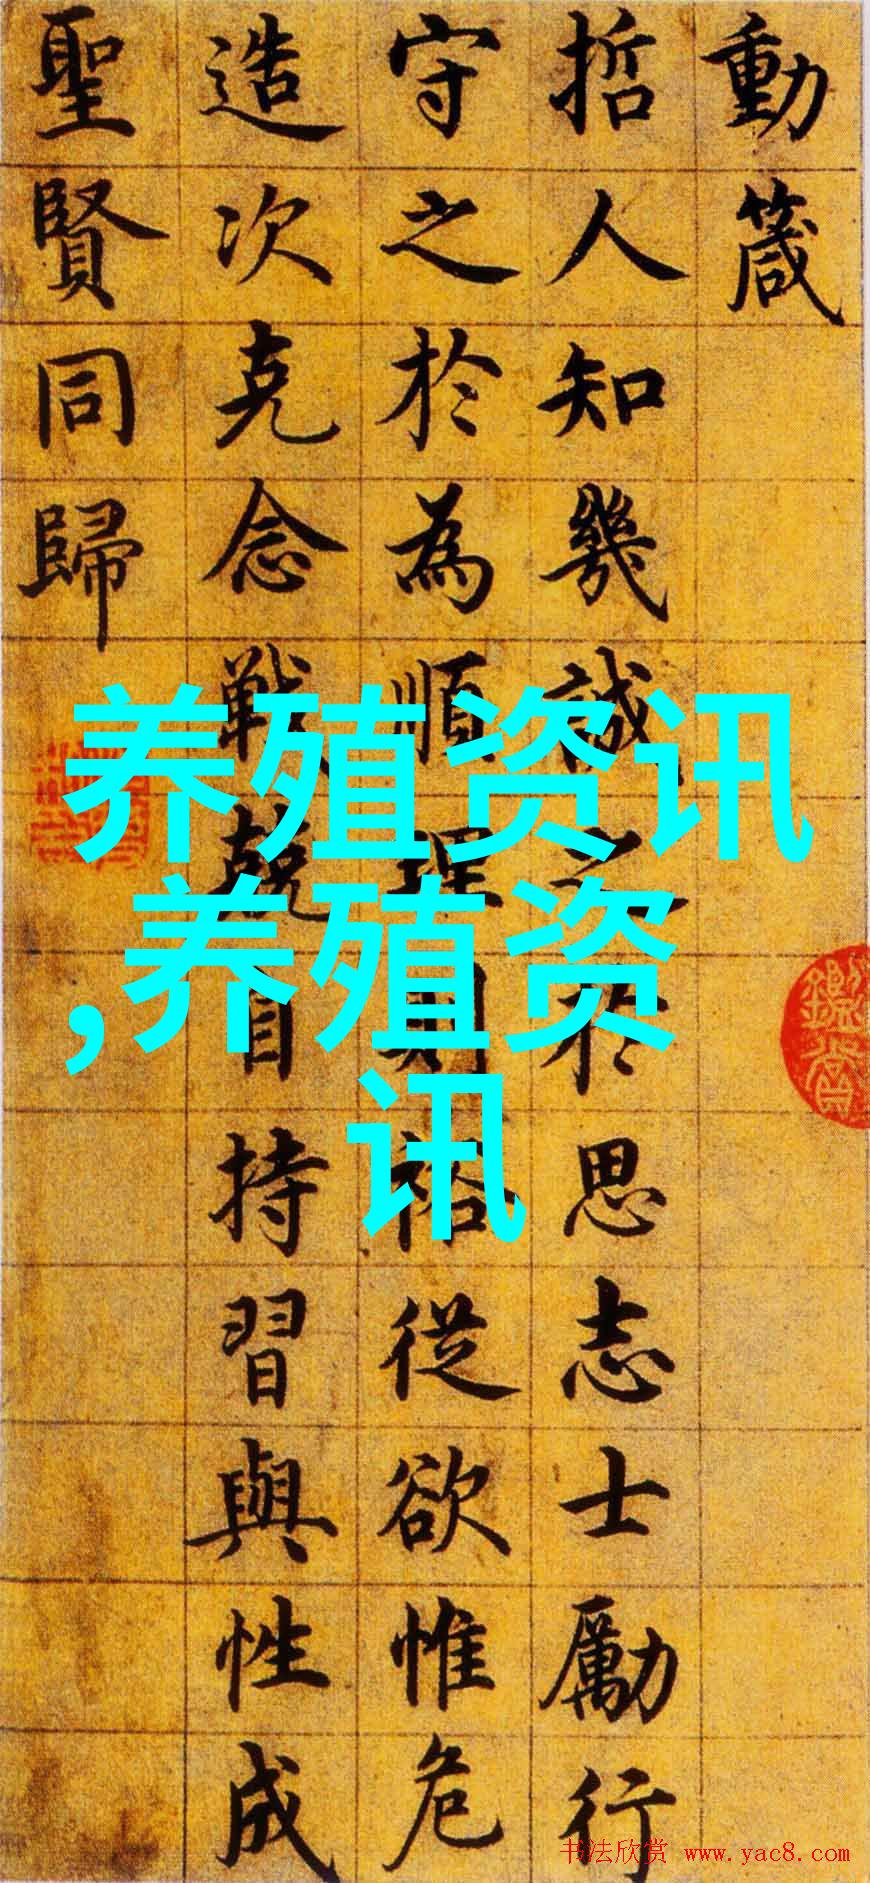 動箴
哲人知幾誠之於思志士勵行
守之於為順理則裕從欲惟危
造次克念戰兢自持習與性成
聖賢同歸
养殖资讯
,养殖资
讯
书法欣赏 www.yac8.com